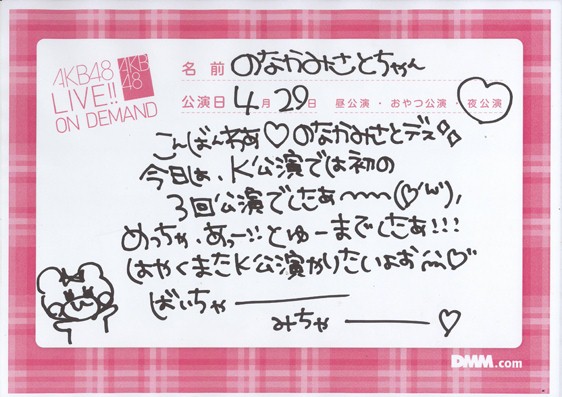 AKB48
LIVE!!
ON DEMAND
AKB
48
名前 のなかみさとちゃん
公演日 4月29日 昼公演・おやつ公演・夜公演
こんばんわあ♡のなかみさとデス
今日は、K公演では初の
3回公演でしたあ〜〜(♡'ω'),
めっちゃ、あっー!!とゆーまでしたあ!!!
はやくまたK公演やりたいよお〜♡
ばいちゃ———
みちゃ———♡
DMM.com